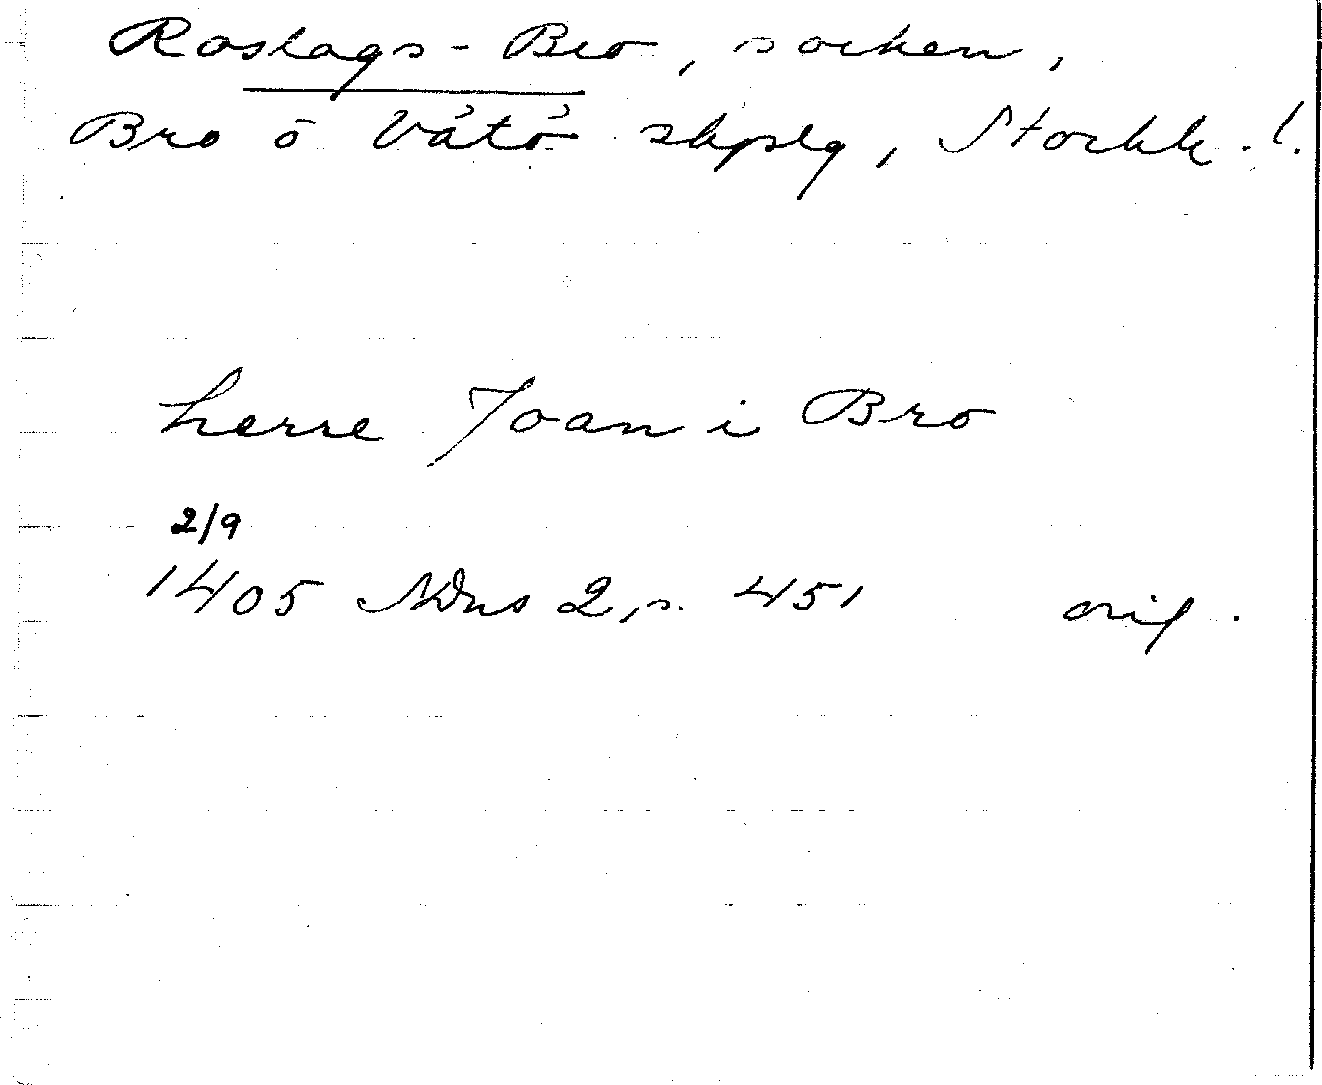 Roslags-Bro, socken,
Bro o Vätö skpslg, Stockh. l.
herre Joan i Bro
2/9
1405 SDns 2, s. 451 orig.